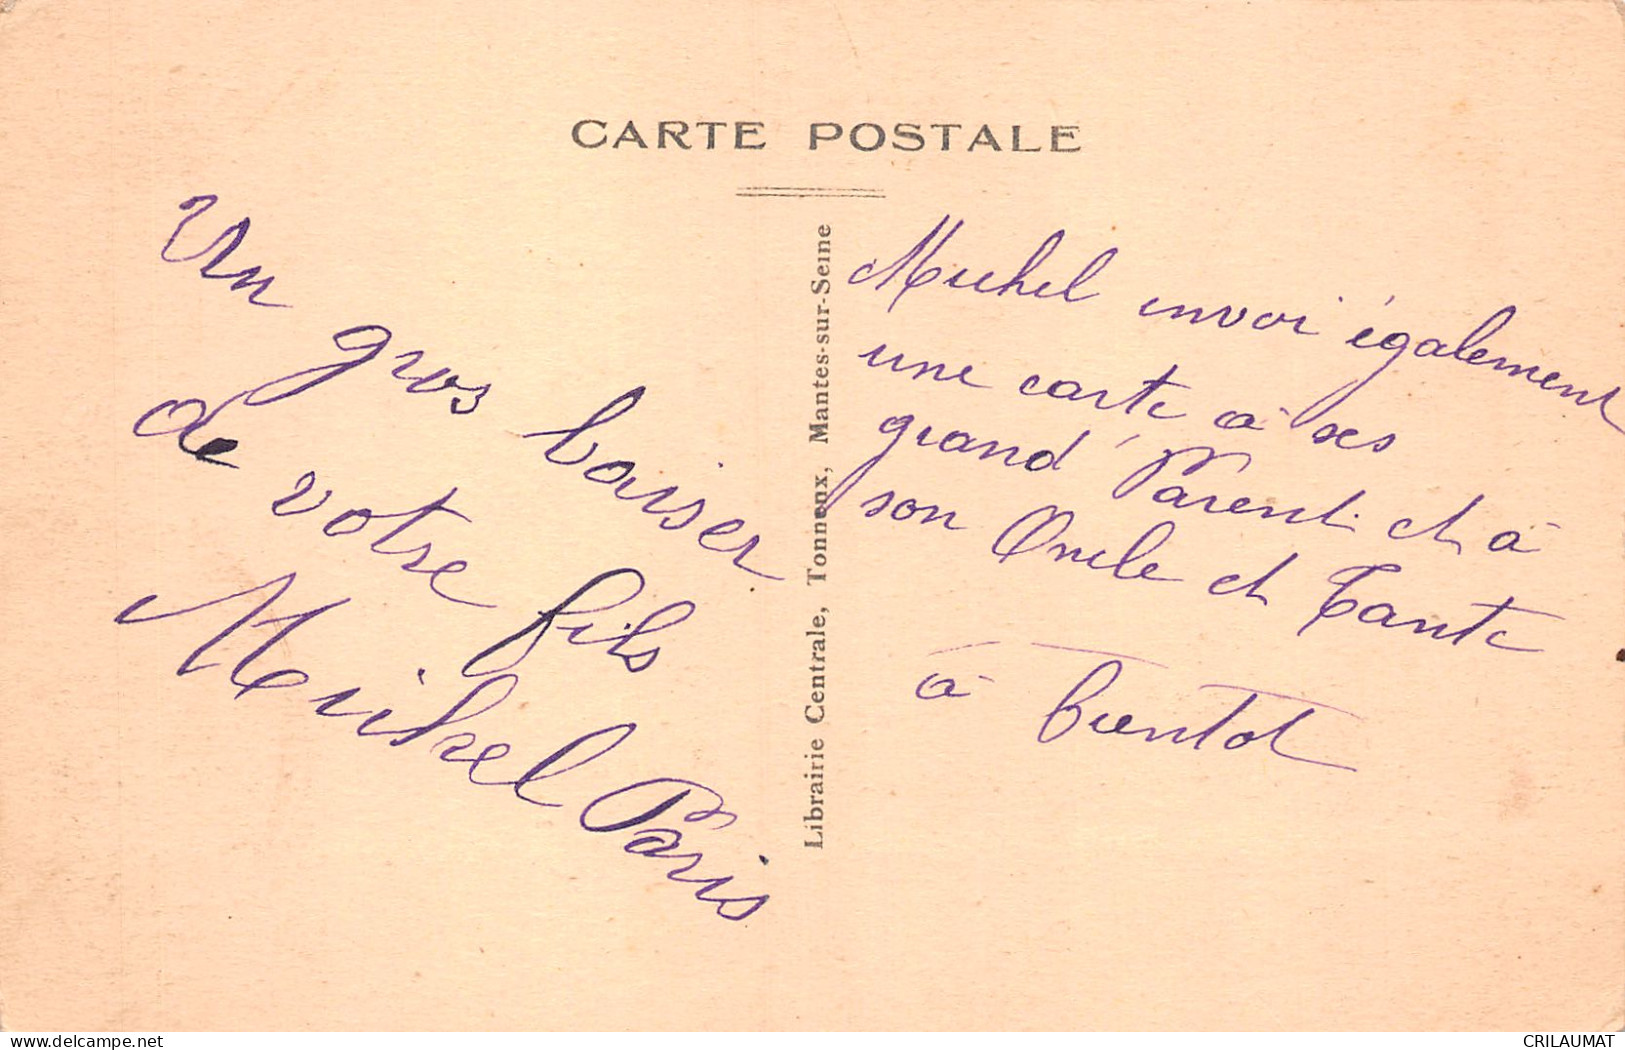 CARTE POSTALE
Un gros baiser
de votre fils
Michel Paris
Librairie Centrale, Tonnoux, Mantes-sur-Seine
Michel envoi également
une carte à ses
grand Parent et à
son Oncle et Tante
à bientot
delcampe.net
CRILAUMAT